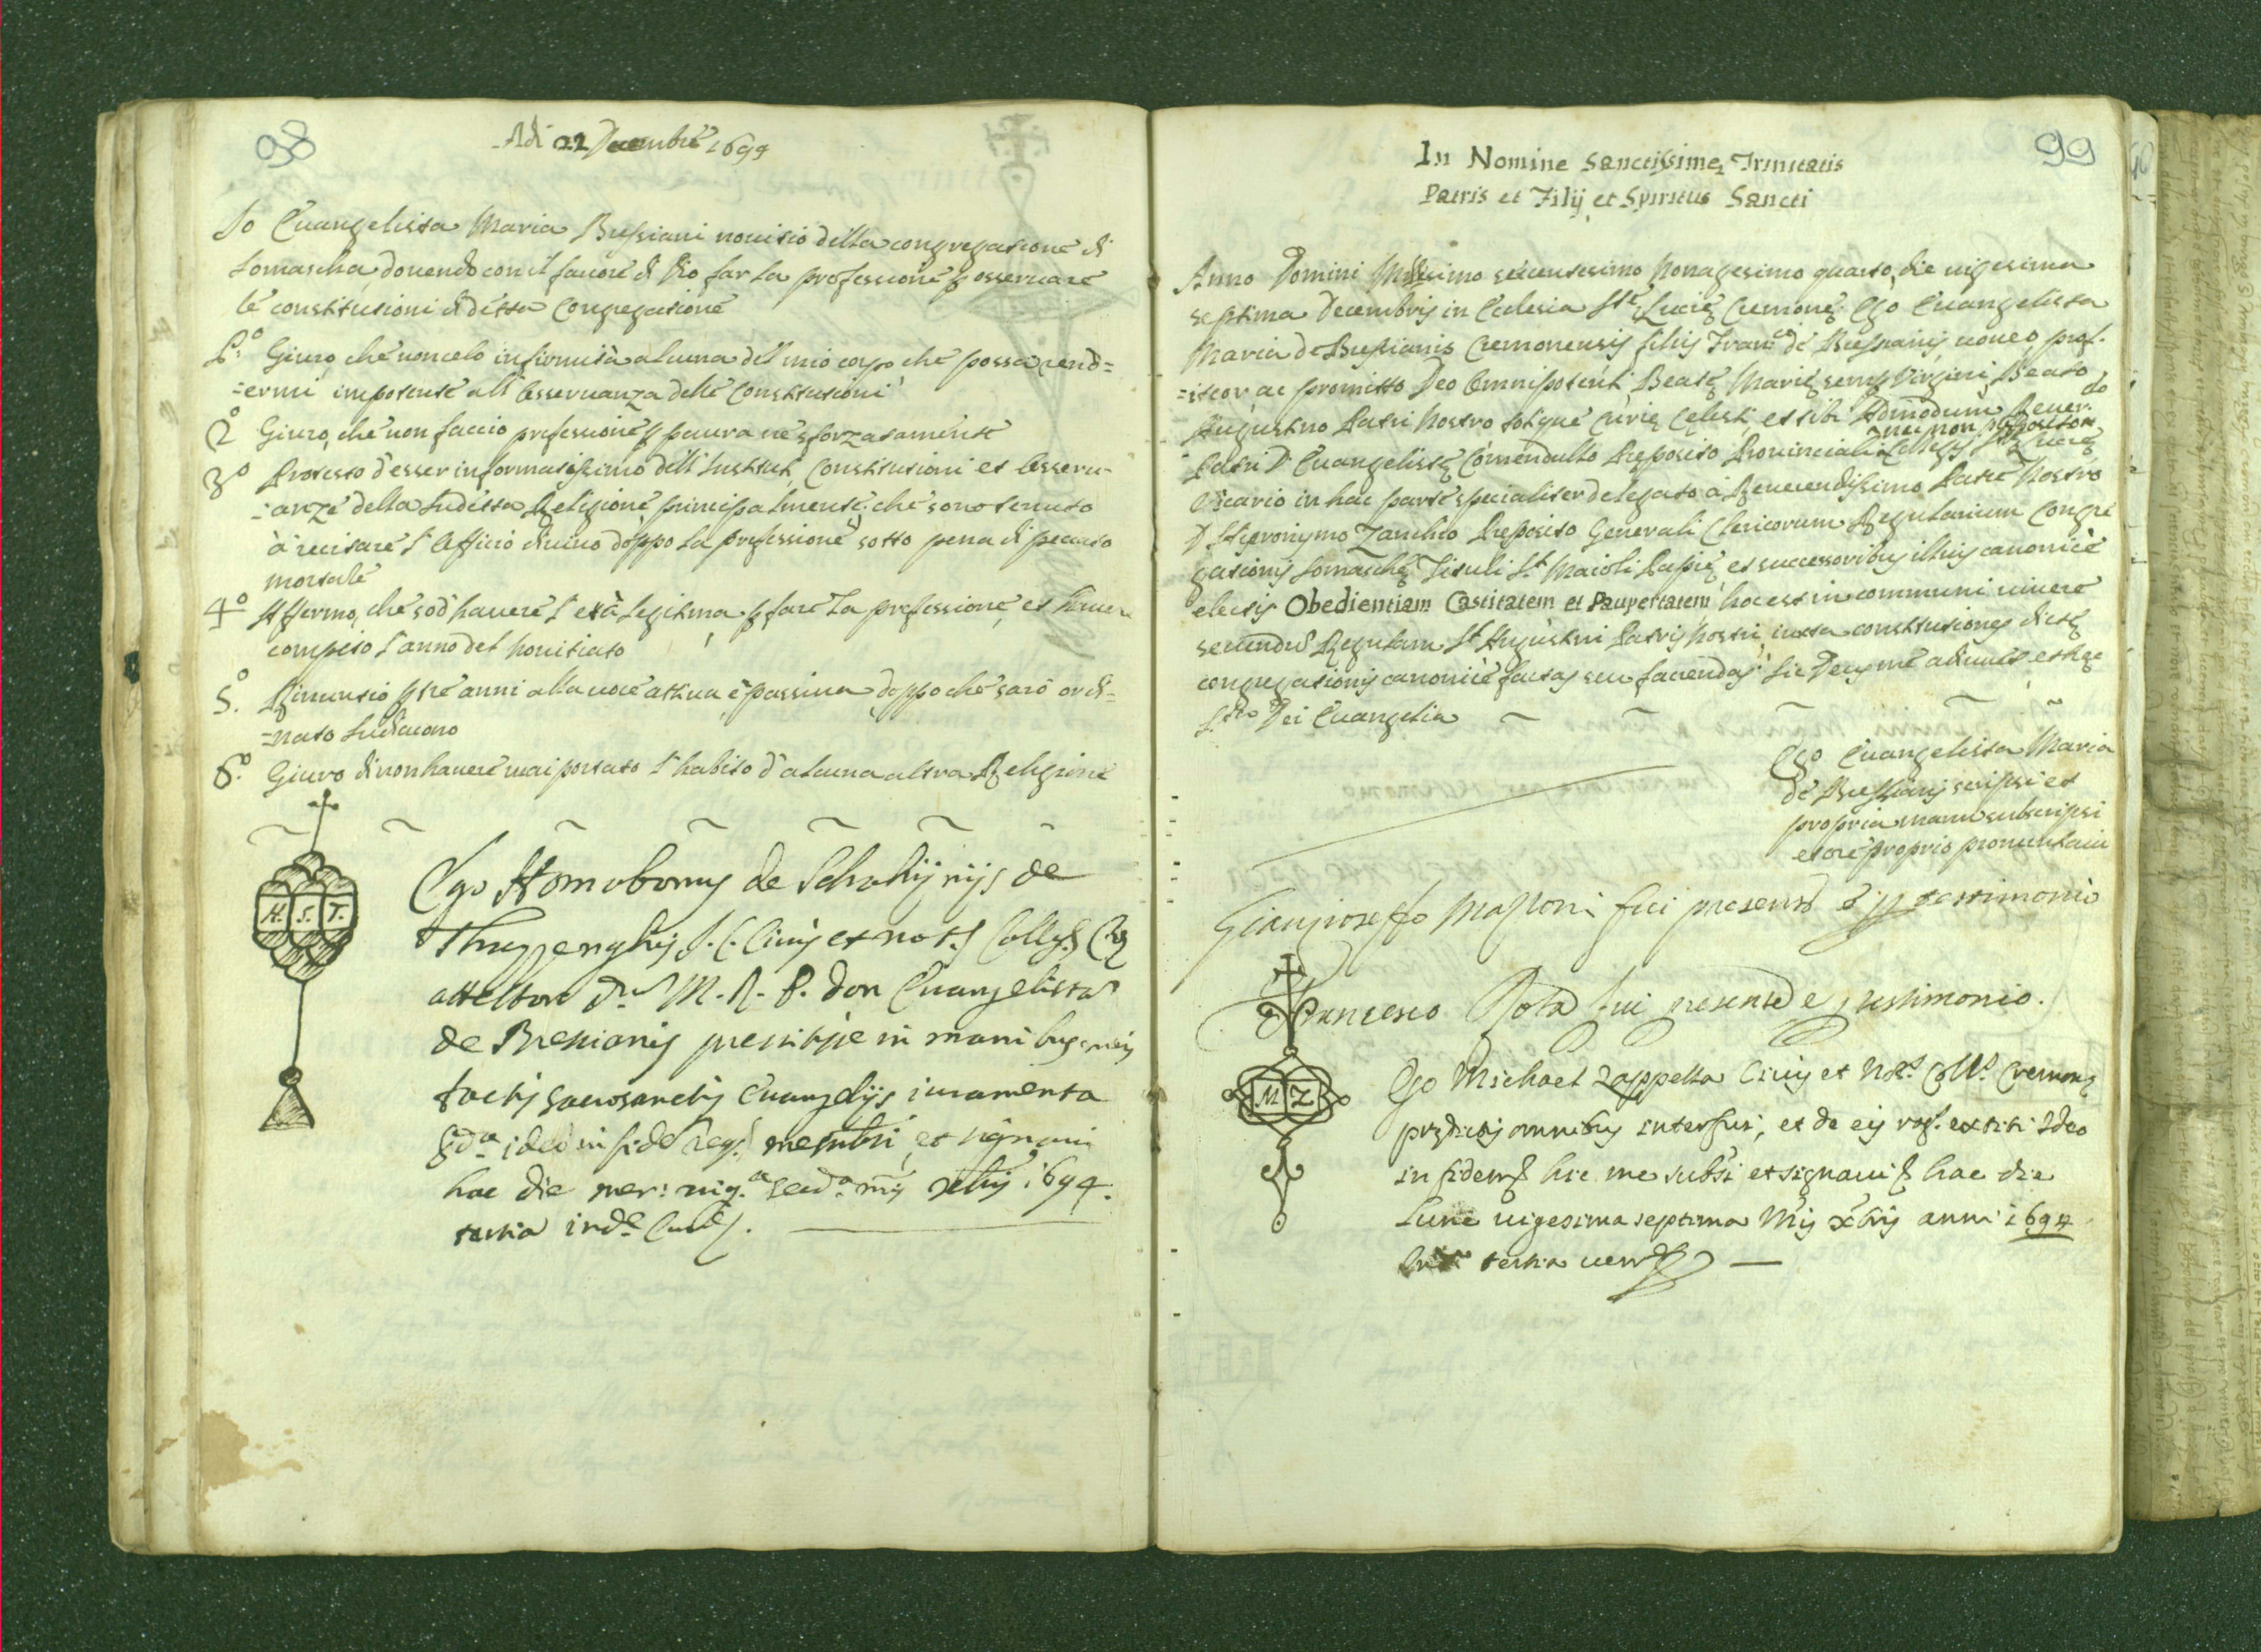 98
Adì 22 Decembre 1694
Io Euangelista Maria Bressiani nouitio della congregatione di
Somascha, douendo con il fauore di Dio far la professione p osseruare
le constitutioni di detta Congregatione
P.º Giuro, che non celo infirmità alcuna del mio corpo che possa rend=
=ermi impotente all' Osseruanza delle Constitutioni
2º Giuro, che non faccio professione p paura ne sforzatamente
3º Protesto d'esser informatissimo dell' Instituti, Constitutioni et Osseru-
=anze della sudetta Religione principalmente, che sono tenuto
à recitare l' Officio diuino doppo la professione sotto pena di peccato
mortale
4º Affermo, che sò d' hauere l' età legitima p fare la professione, et hauer
compito l' anno del nouitiato
5.º Rinuntio p tre anni alla uoce attiua è passiua doppo che sarò ordi-
=nato sudiacono
6.º Giuro di non hauere mai portato l' habito d' alcuna altra Religione
H. S. T.
Ego Homobonus de
de
attestor M. R. P. don Euangelista
de Bressianis in manibus meis
tactis sacrosanctis Euangelijs iuramenta
ideo in fide et signaui
hac die mer: uig.ª 1694.
tertia ind.e
99
In Nomine Sanctissimę Trinitatis
Patris et Filij et Spiritus Sancti
Anno Domini Millesimo sexcentesimo Nonagesimo quarto, die uigesima
septima Decembris in Eclesia Stę Lucię Cremonę. Ego Euangelista
Maria de Bressianis Cremonensis filius Fran.ci de Bressianis uoueo, prof-
=iteor, ac promitto Deo Omnipotenti, Beatę Marię semp Virgini, Beato
Augustino Patri Nostro totique Curię Cęlesti, et tibi Admodum Reuer.do
nec non preposito
Patri D. Euangelistę Comendullo Preposito Prouinciali Collegij Stę Lucię
Vicario in hac parte specialiter delegato à Reuerendissimo Patre Nostro
D. Hieronymo Zanchio Preposito Generali Clericorum Regularium Congre
gationis Somaschę Tituli St. Maioli Papię, et successoribus illius canonicè
electis Obedientiam Castitatem et Paupertatem hoc est in communi uiuere
secundũ Regulam St. Augustini Patris nostri, iuxta constitutiones dictę
congregationis canonicè factas seu faciendas. Sic Deus me adiuuet et hęc
S.ta Dei Euangelia
Ego Euangelista Maria
de Bressianis scripsi et
propria manu subscripsi
et ore proprio pronuntiaui
Gianjioseffo fui presente è p testimonio
Francesco Rota fui presente e p testimonio.
M Z
Ego Michael Zappella Ciuis et Not.s Coll.s Cremonę
prędictis omnibus interfui, et de eis rog.s extiti Ideo
in fidem hic me subsi et signaui hac die
Lune uigesima septima Mis Xbris anni 1694
tertia